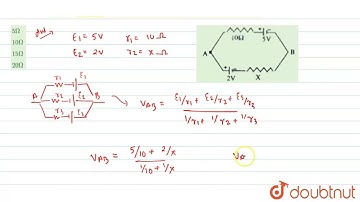 5Ω
10Ω
15Ω
20Ω
Sol
E1 = 5V r1 = 10Ω
E2 = 2V r2 = xΩ
10Ω 5V
A B
2V X
r1 E1
A r2 E2 B
r3 E3
VAB = E1/r1 + E2/r2 + E3/r3
1/r1 + 1/r2 + 1/r3
VAB = 5/10 + 2/x
1/10 + 1/x
VA
doubtnut